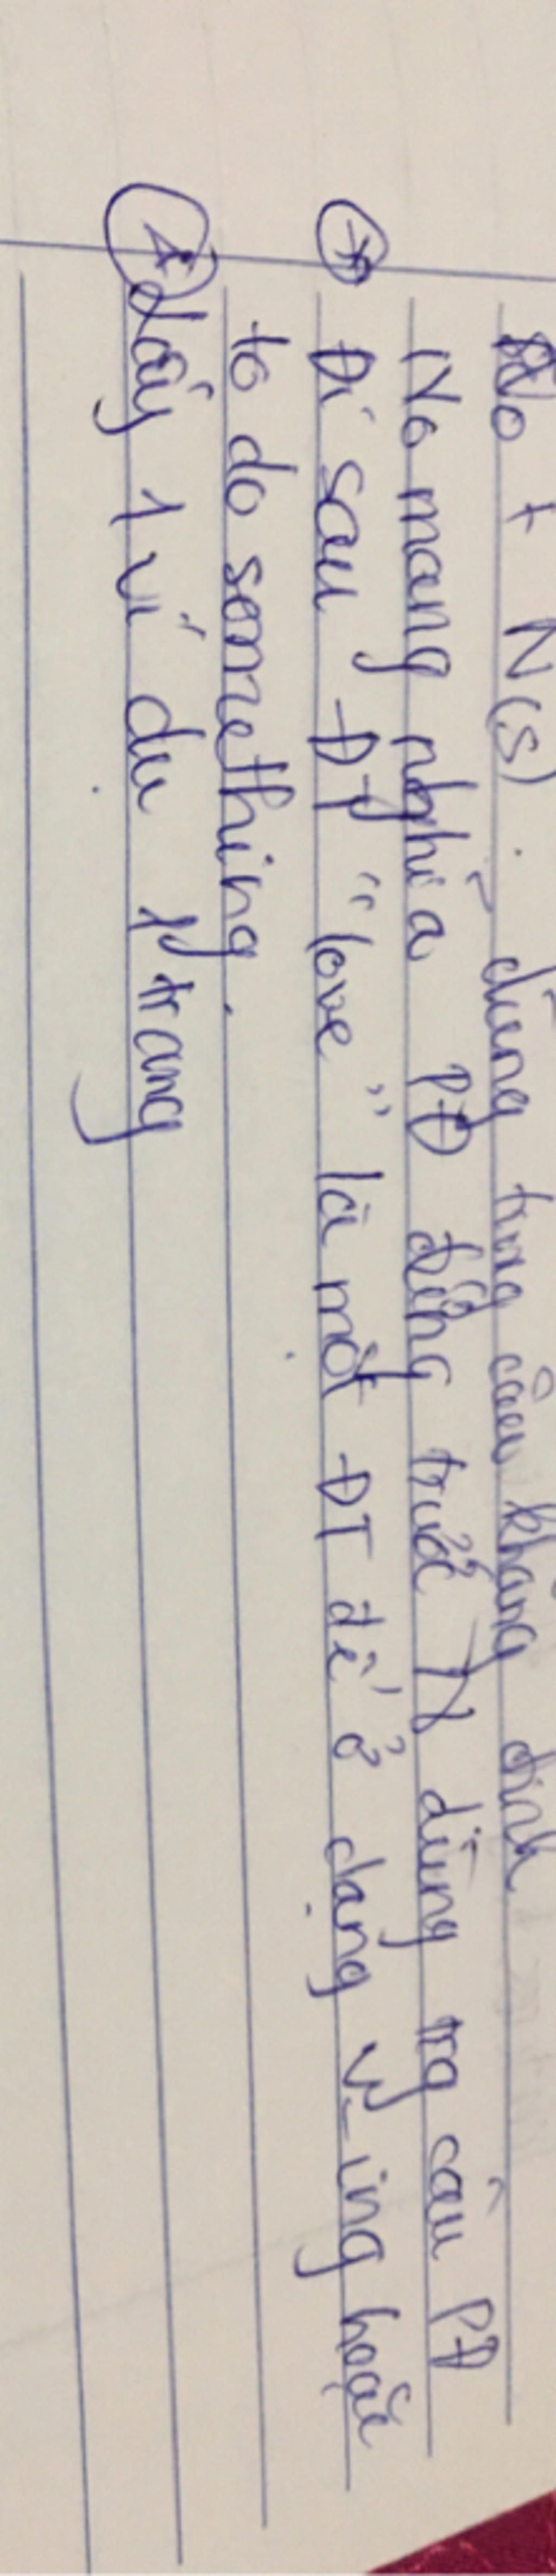 No + N(s). dùng trng câu khẳng định
No mang nghĩa PĐ đứng trước dùng trg câu PĐ
Đi sau ĐT "love" là một ĐT để ở dạng V-ing hoặc
to do something.
Lấy 1 ví dụ trang